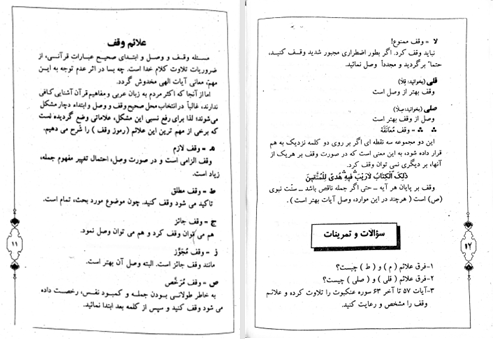 علائم وقف
مسئله وقف و وصل و ابتدای صحیح عبارات قرآنی، از
ضروریات تلاوت کلام خدا است. چه بسا در اثر عدم توجه به این
مهم، معانی آیات الهی مخدوش گردد.
اما از آنجا که اکثر مردم به زبان عربی و مفاهیم قرآن آشنایی کافی
ندارند، غالباً در انتخاب محل صحیح وقف و وصل و ابتداء دچار مشکل
می‌شوند؛ لذا برای رفع نسبی این مشکل، علاماتی وضع گردیده است
که برخی از مهم ترین این علائم (رموز وقف) را شرح می دهیم.
م ـ وقف لازم
وقف الزامی است و در صورت وصل، احتمال تغییر مفهوم جمله،
زیاد است.
ط ـ وقف مطلق
تاکید می شود وقف کنید. چون موضوع مورد بحث، تمام است.
ج ـ وقف جائز
هم می توان وقف کرد و هم می توان وصل نمود.
ز ـ وقف مُجَوَّز
مانند وقف جائز است. البته وصل آن بهتر است.
ص ـ وقف مُرَخَّص
به خاطر طولانی بودن جمله و کمبود نفس، رخصت داده
می شود وقف کنید و سپس از کلمه بعد ابتدا نمائید.
۱۱
لا ـ وقف ممنوع!
نباید وقف کرد. اگر بطور اضطراری مجبور شدید وقف کنید،
حتماً برگردید و مجدداً وصل نمائید.
قلی (بخوانید: قِلا)
وقف بهتر از وصل است
صلی (بخوانید: صِلا)
وصل بهتر از وقف است
∴ ∴ ـ وقف مُعانَقَه
این دو مجموعه سه نقطه ای اگر بر روی دو کلمه نزدیک به هم
قرار داده شود، به این معنی است که در صورت وقف بر هریک از
آنها، بر دیگری نمی توان وقف کرد.
ذٰلِکَ الْکِتابُ لارَیْبَ ∴ فِیهِ ∴ هُدًی لِلْمُتَّقِینَ
وقف بر پایان هر آیه ـ حتی اگر جمله ناقص باشد ـ سنّت نبوی
(ص) است (هرچند در این موارد، وصل آیات بهتر است).
سؤالات و تمرینات
۱-فرق علائم (م) و (ط) چیست؟
۲-فرق علائم (قلی) و (صلی) چیست؟
۳-آیات ۵۷ تا آخر ۶۳ سوره عنکبوت را تلاوت کرده و علائم
وقف را مشخص و رعایت کنید.
۱۲